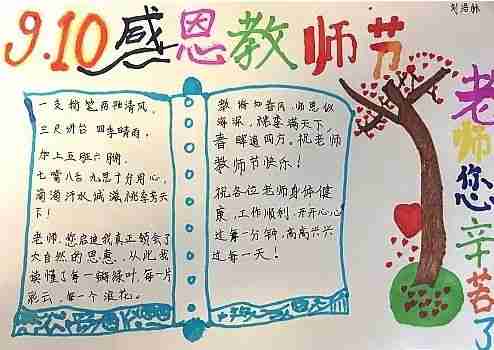 9.10感恩教师节
刘浩林
一支粉笔两袖清风，
三尺讲台 四季晴雨，
加上五班六朝，
七嘴八舌 九思十分用心，
滴滴汗水 诚滋桃李芳天
下！
老师，您启迪我真正领会了
大自然的恩惠，从此我
读懂了每一瓣绿叶，每一片
彩云，每一个浪花。
教诲如春风，师恩似
海深，桃李满天下，
春晖遍四方。祝老师
教师节快乐！
祝各位老师身体健
康，工作顺利，开开心心
过每一分钟，高高兴兴
过每一天！
老师您辛苦了